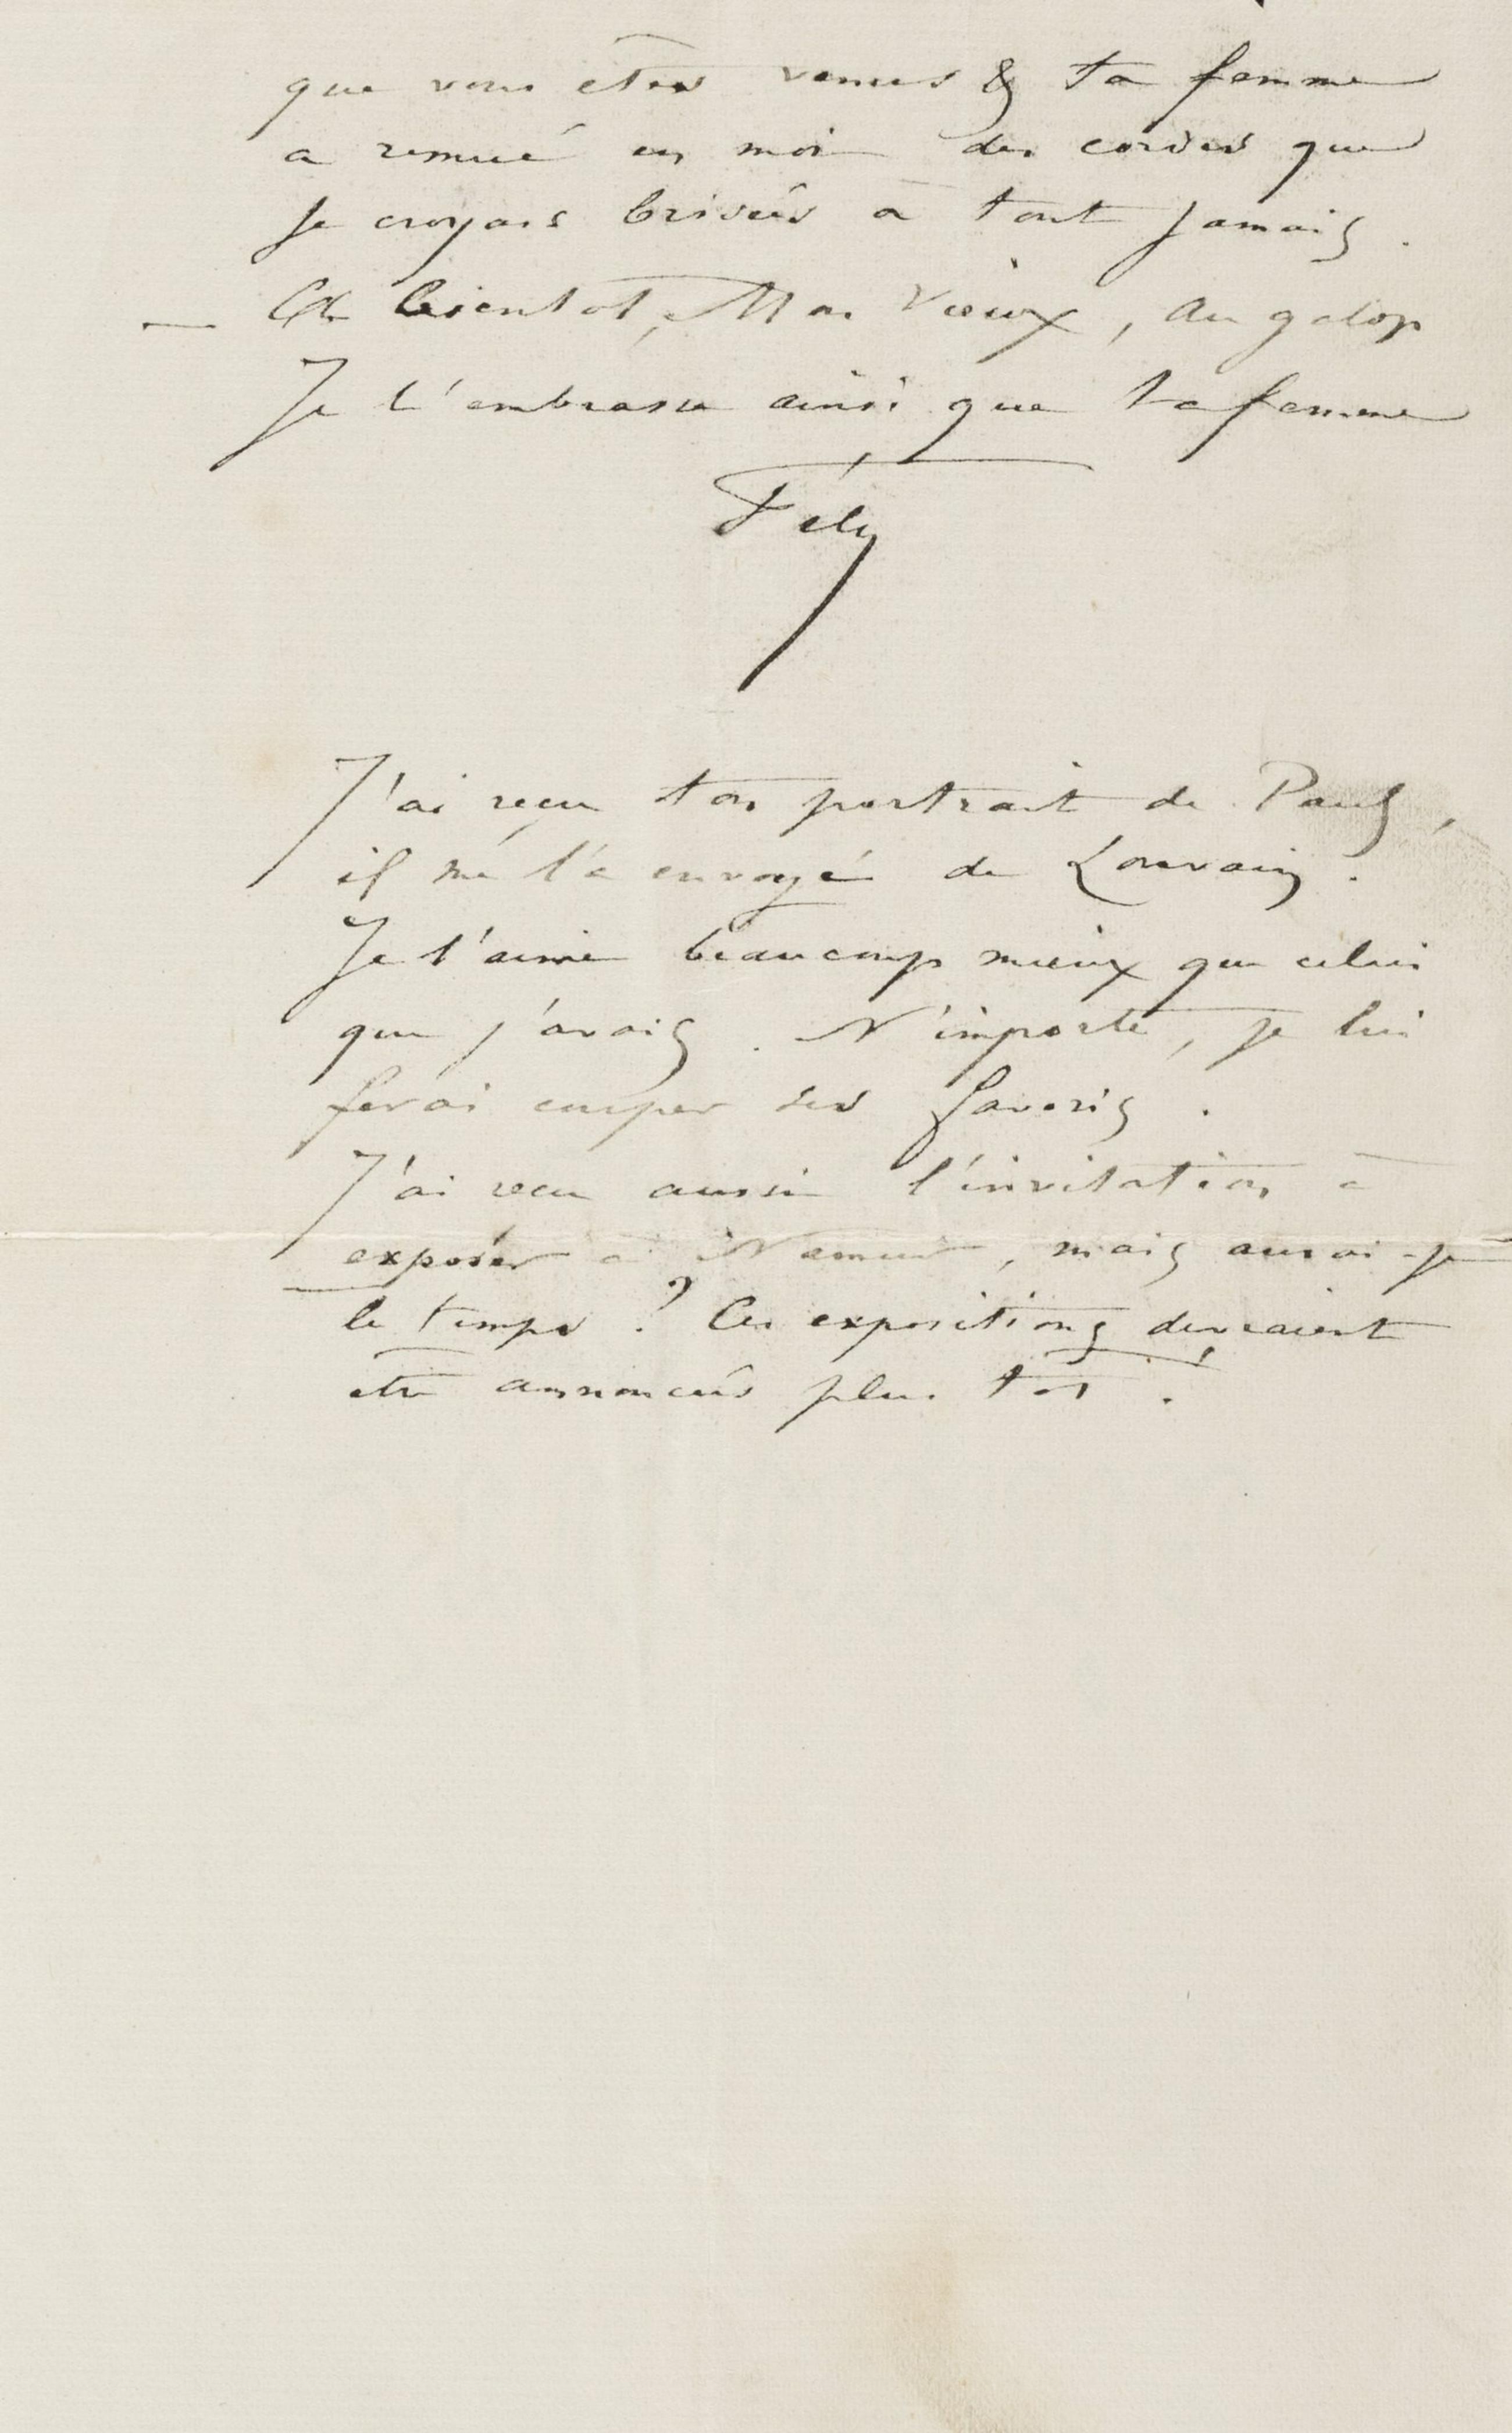 que vous êtes venus & ta femme
a remué en moi des cordes que
je croyais brisées à tout jamais.
— A bientôt, Mon Vieux, au galop
Je t'embrasse ainsi que ta femme
Fély
J'ai reçu ton portrait de Paul,
il me l'a envoyé de Louvain.
Je l'aime beaucoup mieux que celui
que j'avais. N'importe, je lui
ferai couper ses favoris.
J'ai reçu aussi l'invitation à
exposer à Namur, mais aurai-je
le temps ? Ces expositions devraient
être annoncées plus tôt.